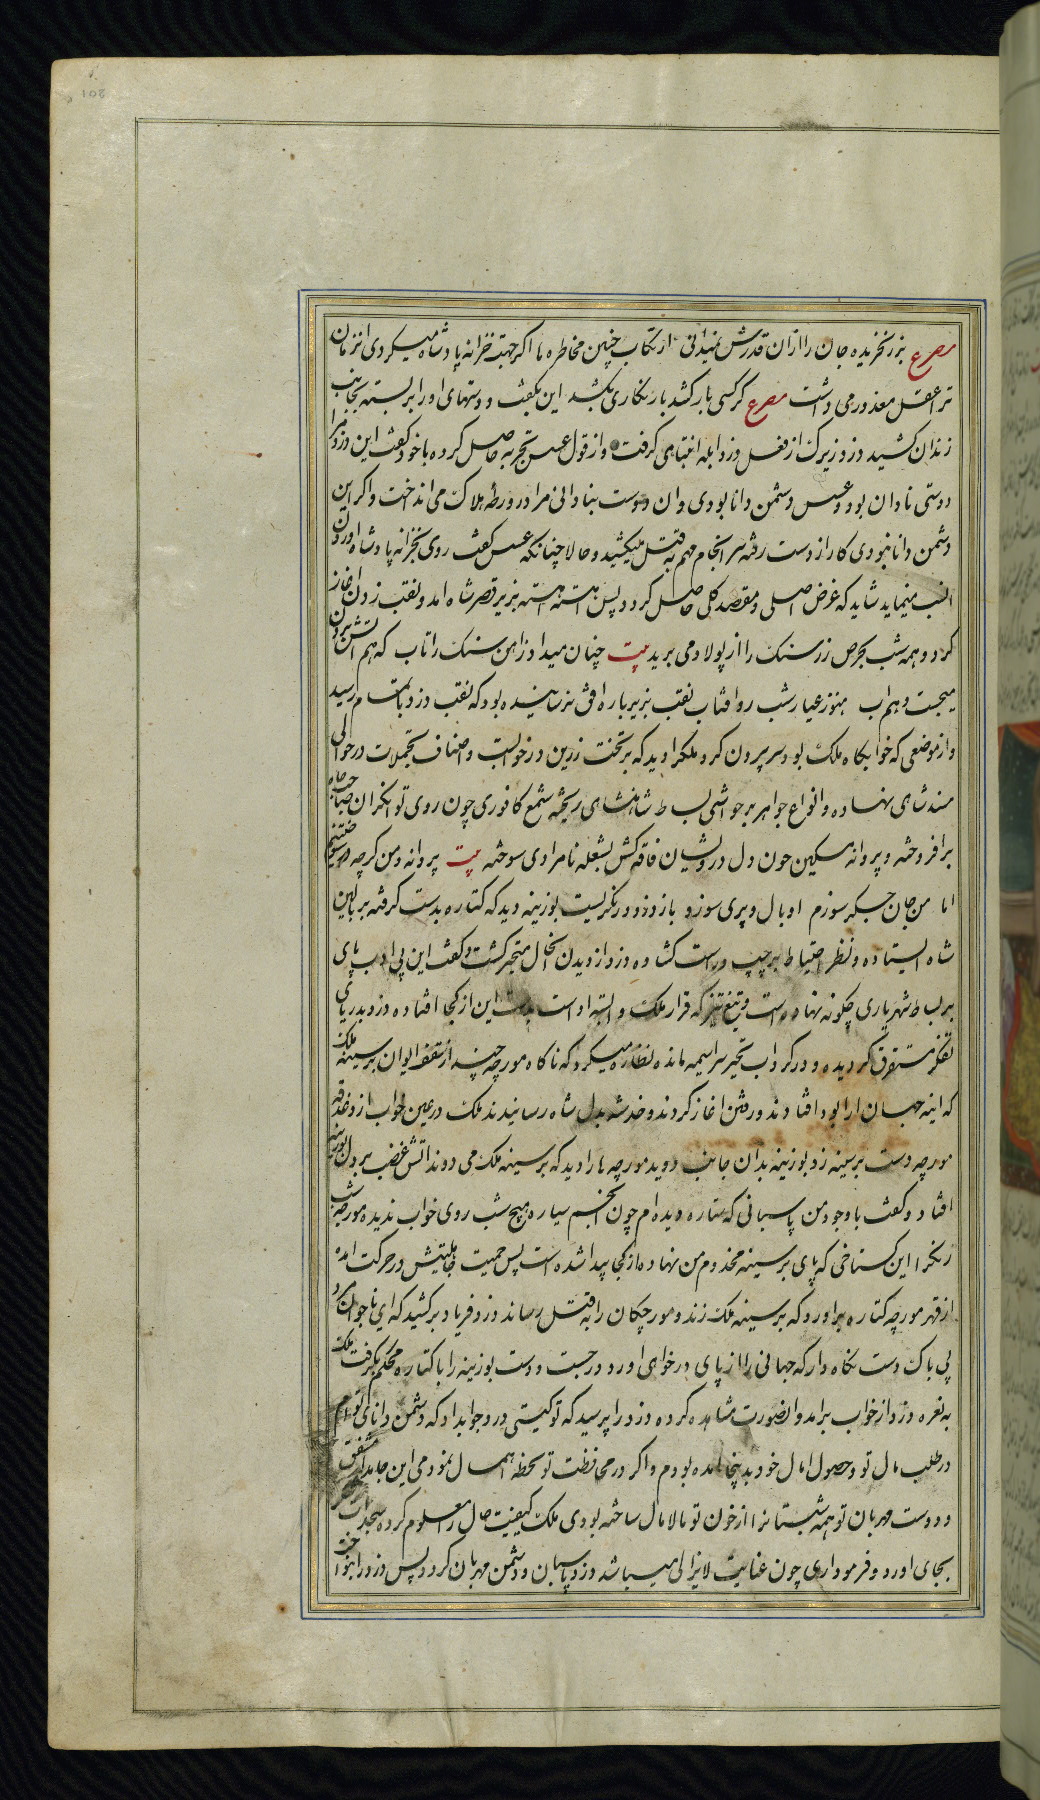 مصرع بزر نخریده جان را ازان قدرش نمیدانی ارتکاب چنین مخاطره ما اگر جهت خزانه پادشاه میکردی انزمان
ترا عقل معذور می داشت مصرع گر کسی بار کشد بار نگاری بکشد این بگفت و دستهای او را بر بسته بجانب
زندان کشید دزد زیرک از فعل دزد ابله انتباهی گرفت و از قول عسس تجربه حاصل کرده با خود گفت این دزد مرا
دوستی نادان بود و عسس دشمن دانا بودی و ان دوست بنادانی مرا در ورطه هلاک می انداخت و اگر این
دشمن دانا نبودی کار از دست رفته سرانجام مهم بقتل میکشید و حالا چنانکه عسس گفت روی بخزانه پادشاه اوردن
انسب مینماید شاید که غرض اصلی و مقصد کلی حاصل گردد پس اهسته اهسته بزیر قصر شاه امد و نقب زدن اغاز
کرد و همه شب بحرص زر سنک را از پولاد می برید بیت چنان میداد ز اهن سنک را تاب که هم اتش برون
میجست و هم اب هنوز عیار شب رو افتاب نقب بزیر باره افق نرسانیده بود که نقب دزد باتمام رسید
و از موضعی که خوابکاه ملک بود سر برون کرد ملکرا دید که بر تخت زرین در خوابست و اصناف تجملات در حوالی
مسند شاهی نهاده و انواع جواهر بر حواشی بساط شاهنشاهی ریخته شمع کافوری چون روی توانکران صاحب جاه
برافروخته و پروانه مسکین چون دل درویشان فاقه کش بشعله نامرادی سوخته بیت پروانه و من گرچه بهم سوختنیم
اما من جان جگر سوزم او بال و پری سوزد باز دزد در نگریست بوزینه دید که کتاره بدست گرفته بر بالین
شاه ایستاده و نظر احتیاط بر چپ و راست گشاده دزد از دیدن انحال متحیر گشت و گفت این بی ادب پای
بر بساط شهریاری چگونه نهاده است و تیغ تیز که قرار ملک وابسته اوست بدست این از کجا افتاده دزد بدریای
تفکر مستغرق گردیده و در گرداب تحیر سراسیمه مانده نظاره میکرد که ناگاه مورچه چند از سقف ایوان بر سینه ملک
که اینه جهان ارا بود افتادند و رفتن اغاز کردند و خدشه بدل شاه رسانیدند ملک در عین خواب از دغدغه
مورچه دست بر سینه زد بوزینه بدان جانب دوید مورچه ها را دید که بر سینه ملک می دوند اتش غضب بر دل بوزینه
افتاد و گفت با وجود من پاسبانی که ستاره دیده ام چون انجم سیاره هیچ شب روی خواب ندیده مورچه شب
رنکرا این گستاخی که پای بر سینه مخدوم من نهاده از کجا پیدا شده است پس حمیت جاهلیتش در حرکت امده
از قهر مورچه کتاره براورد که بر سینه ملک زند و مورچگان را بقتل رساند دزد فریاد برکشید که ای ناجوانمرد
بی باک دست نگاه دار که جهانی را از پای درخواهی اورد و درجست و دست بوزینه را با کتاره محکم بگرفت ملک
به نعره دزد از خواب برامد و انصورت مشاهده کرده دزد را پرسید که تو کیستی دزد جواب داد که دشمن دانای توام
در طلب مال تو و حصول امال خود بدینجا امده بودم و اگر در محافظت تو لحظه اهمال نمودمی این جاندار مشفق
و دوست مهربان تو همه شبستانرا از خون تو مالامال ساخته بودی ملک کیفیت حال را معلوم کرده سجدات شکر
بجای اورد و فرمود اری چون عنایت لایزالی میباشد دزد پاسبان و دشمن مهربان گردد پس دزد را بنواخت